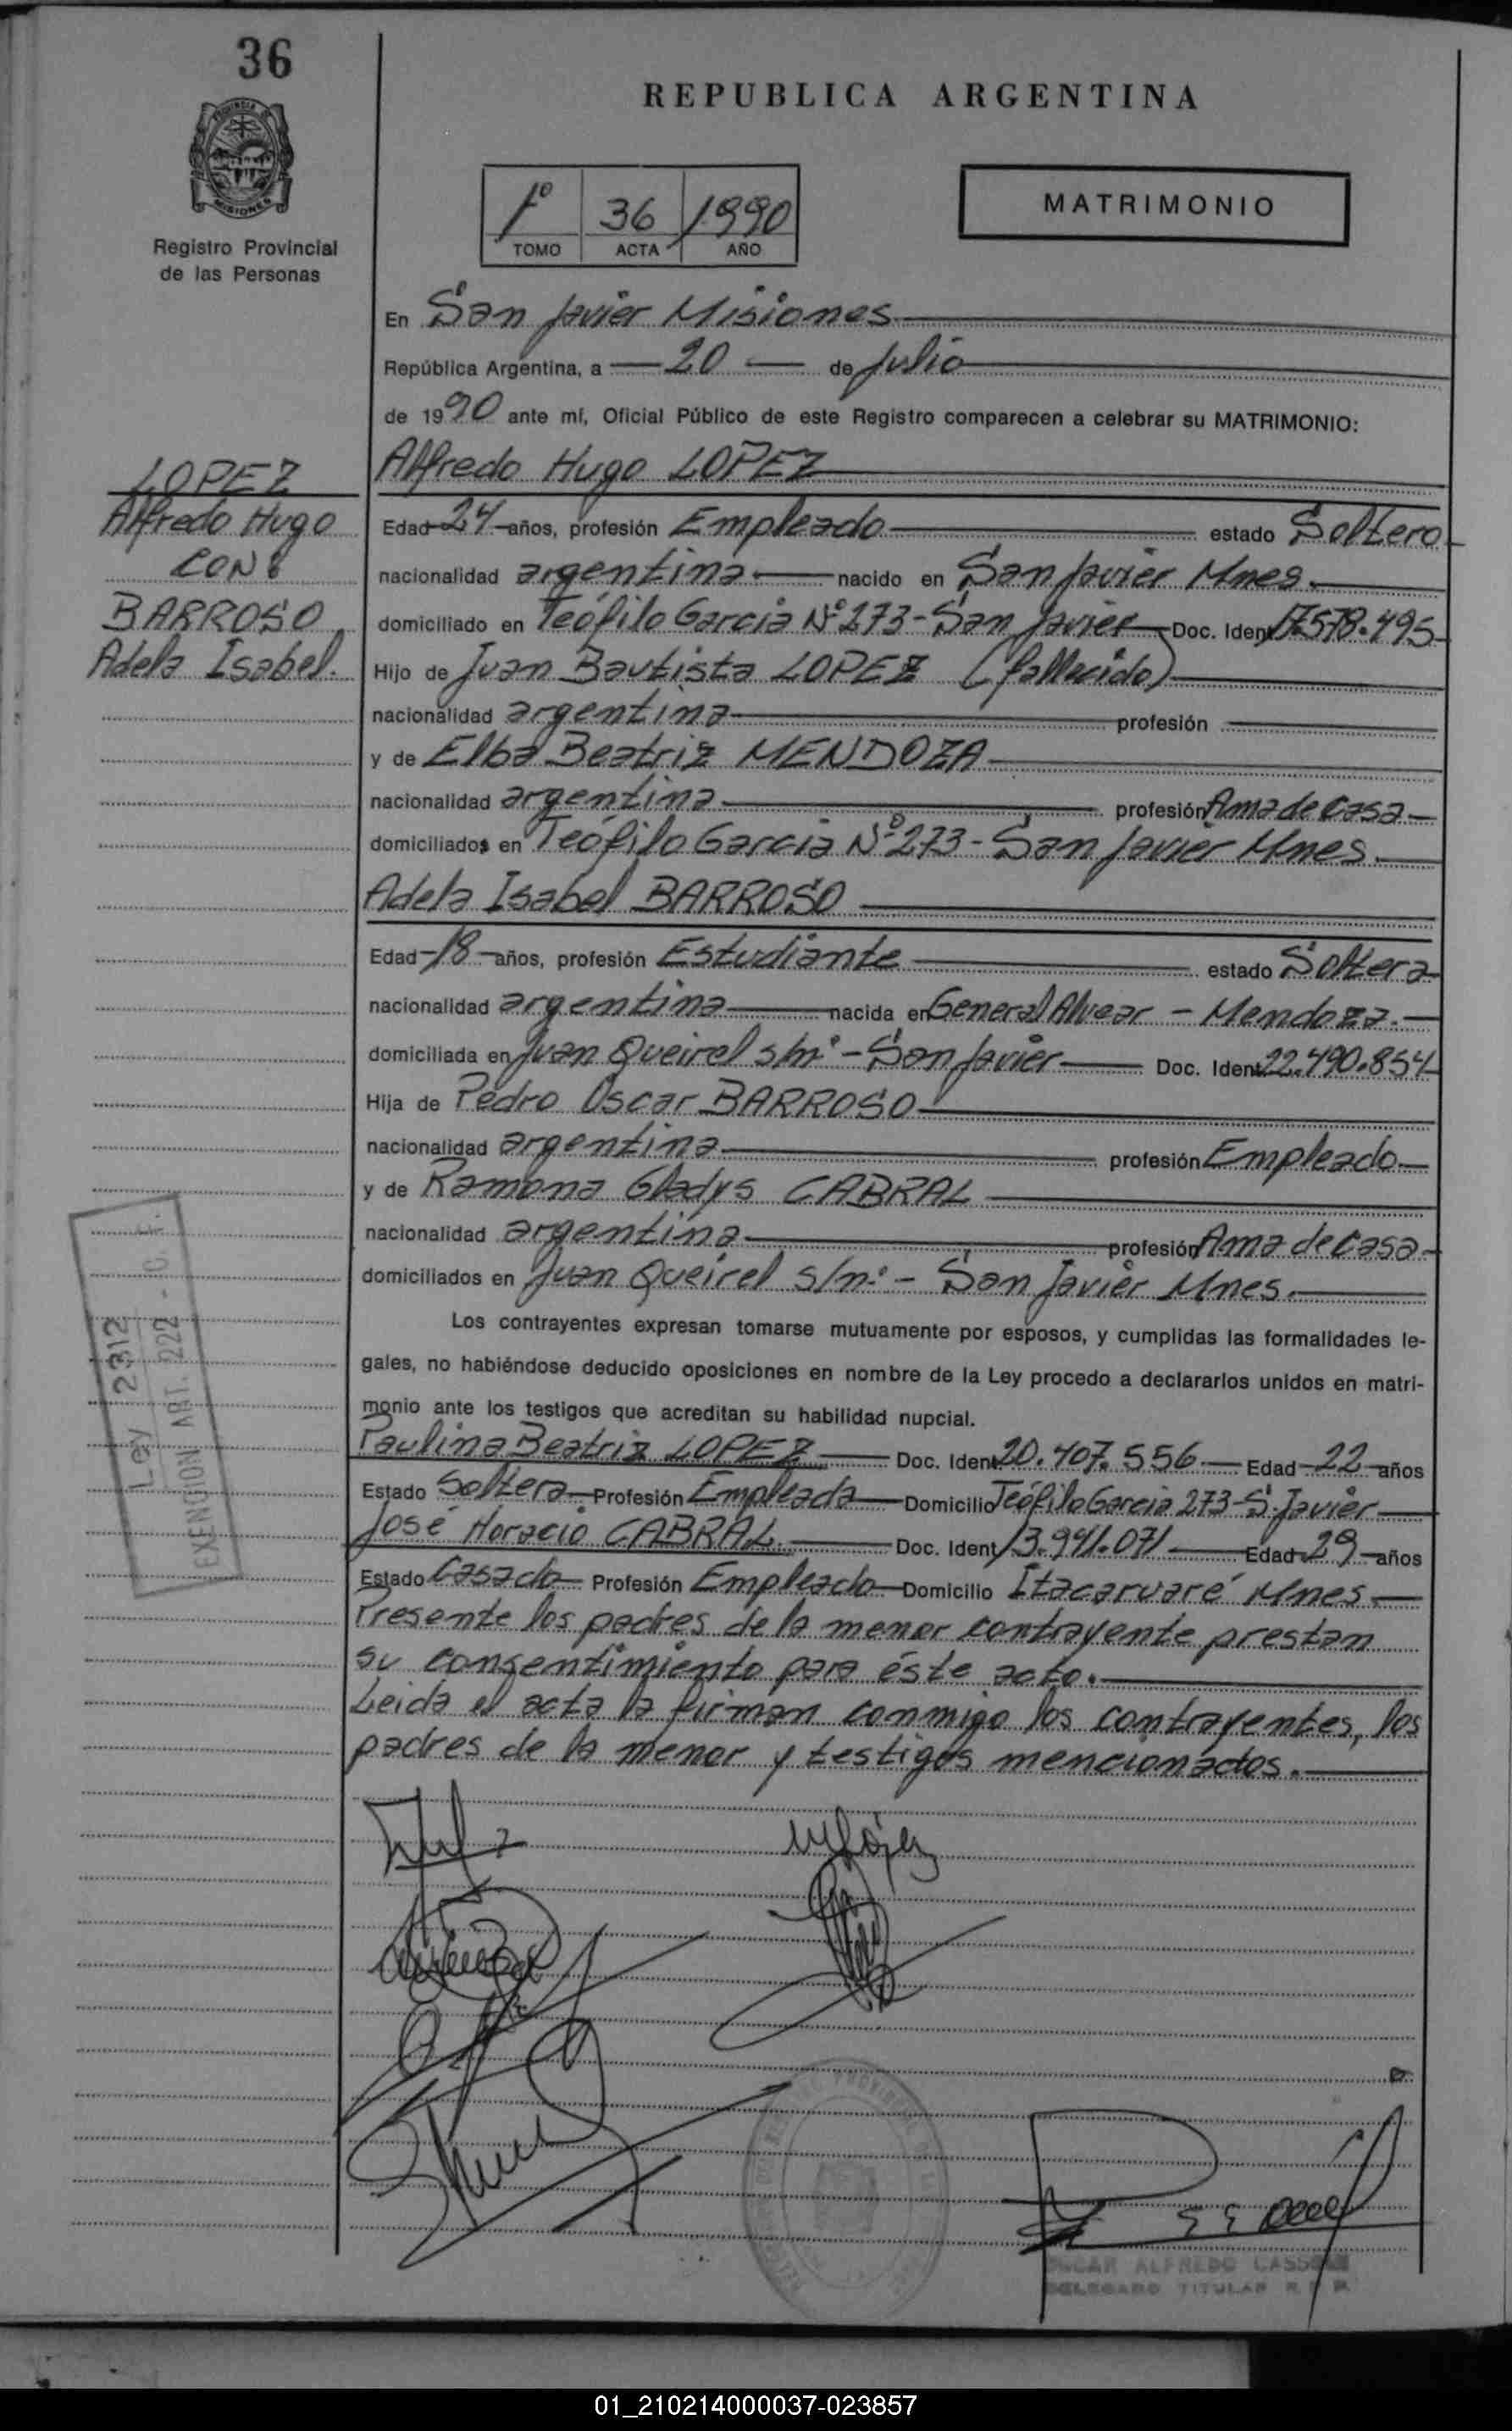 36
REPUBLICA ARGENTINA
PROVINCIA
MISIONES
Registro Provincial
de las Personas
1º 36 1990
TOMO ACTA AÑO
MATRIMONIO
En San Javier Misiones
República Argentina, a 20 de Julio
de 1990 ante mí, Oficial Público de este Registro comparecen a celebrar su MATRIMONIO:
LOPEZ
Alfredo Hugo
CON:
BARROSO
Adela Isabel.
Alfredo Hugo LOPEZ
Edad 24 años, profesión Empleado estado Soltero
nacionalidad argentina nacido en San Javier Mnes.
domiciliado en Teófilo Garcia Nº 273 - San Javier Doc. Ident 17.578.495
Hijo de Juan Bautista LOPEZ (fallecido)
nacionalidad argentina profesión
y de Elba Beatriz MENDOZA
nacionalidad argentina profesión Ama de casa
domiciliados en Teófilo Garcia Nº 273 - San Javier Mnes.
Adela Isabel BARROSO
Edad 18 años, profesión Estudiante estado Soltera
nacionalidad argentina nacida en General Alvear - Mendoza.
domiciliada en Juan Queirel s/nº - San Javier Doc. Ident 22.490.854
Hija de Pedro Oscar BARROSO
nacionalidad argentina profesión Empleado
y de Ramona Gladys CABRAL
nacionalidad argentina profesión Ama de casa
domiciliados en Juan Queirel s/nº - San Javier Mnes.
Los contrayentes expresan tomarse mutuamente por esposos, y cumplidas las formalidades le-
gales, no habiéndose deducido oposiciones en nombre de la Ley procedo a declararlos unidos en matri-
monio ante los testigos que acreditan su habilidad nupcial.
Ley 2312
EXENCION ART. 222 - C. F.
Paulina Beatriz LOPEZ Doc. Ident 20.407.556 Edad 22 años
Estado Soltera Profesión Empleada Domicilio Teófilo Garcia 273 - S. Javier
José Horacio CABRAL Doc. Ident 13.941.071 Edad 29 años
Estado Casado Profesión Empleado Domicilio Itacaruaré Mnes
Presente los padres de la menor contrayente prestan
su consentimiento para éste acto.
Leida el acta la firman conmigo los contrayentes, los
padres de la menor y testigos mencionados.
OSCAR ALFREDO
DELEGADO TITULAR R P P
01_210214000037-023857